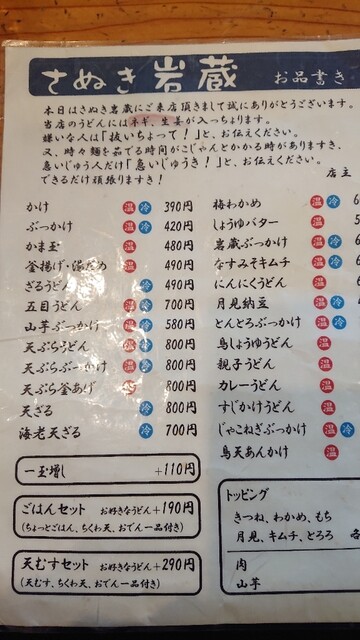 さぬき岩蔵 お品書き
本日はさぬき岩蔵にご来店頂きまして誠にありがとうございます。
当店のうどんにはネギ、生姜が入っちょります。
嫌いな人は「抜いちょって！」と、お伝えください。
又、時々麺を茹でる時間がこじゃんとかかる時がありますき、
急いじゅう人だけ「急いじゅうき！」と、お伝えください。
できるだけ頑張りますき！
店主
かけ 温 冷 390円
ぶっかけ 温 冷 420円
かま玉 温 480円
釜揚げ・湯だめ 温 490円
ざるうどん 冷 490円
五目うどん 温 冷 700円
山芋ぶっかけ 温 冷 580円
天ぷらうどん 温 冷 800円
天ぷらぶっかけ 温 冷 800円
天ぷら釜あげ 温 800円
天ざる 冷 800円
海老天ざる 冷 700円
一玉増し +110円
ごはんセット お好きなうどん+190円
(ちょっとごはん、ちくわ天、おでん一品付き)
天むすセット お好きなうどん+290円
(天むす、ちくわ天、おでん一品付き)
梅わかめ 温 冷
しょうゆバター 温
岩蔵ぶっかけ 温 冷
なすみそキムチ 温 冷
にんにくうどん 温
月見納豆 温 冷
とんとろぶっかけ 温 冷
鳥しょうゆうどん 温
親子うどん 温
カレーうどん 温
すじかけうどん 温
じゃこねぎぶっかけ 温 冷
鳥天あんかけ 温
トッピング
きつね、わかめ、もち
月見、キムチ、とろろ
肉
山芋